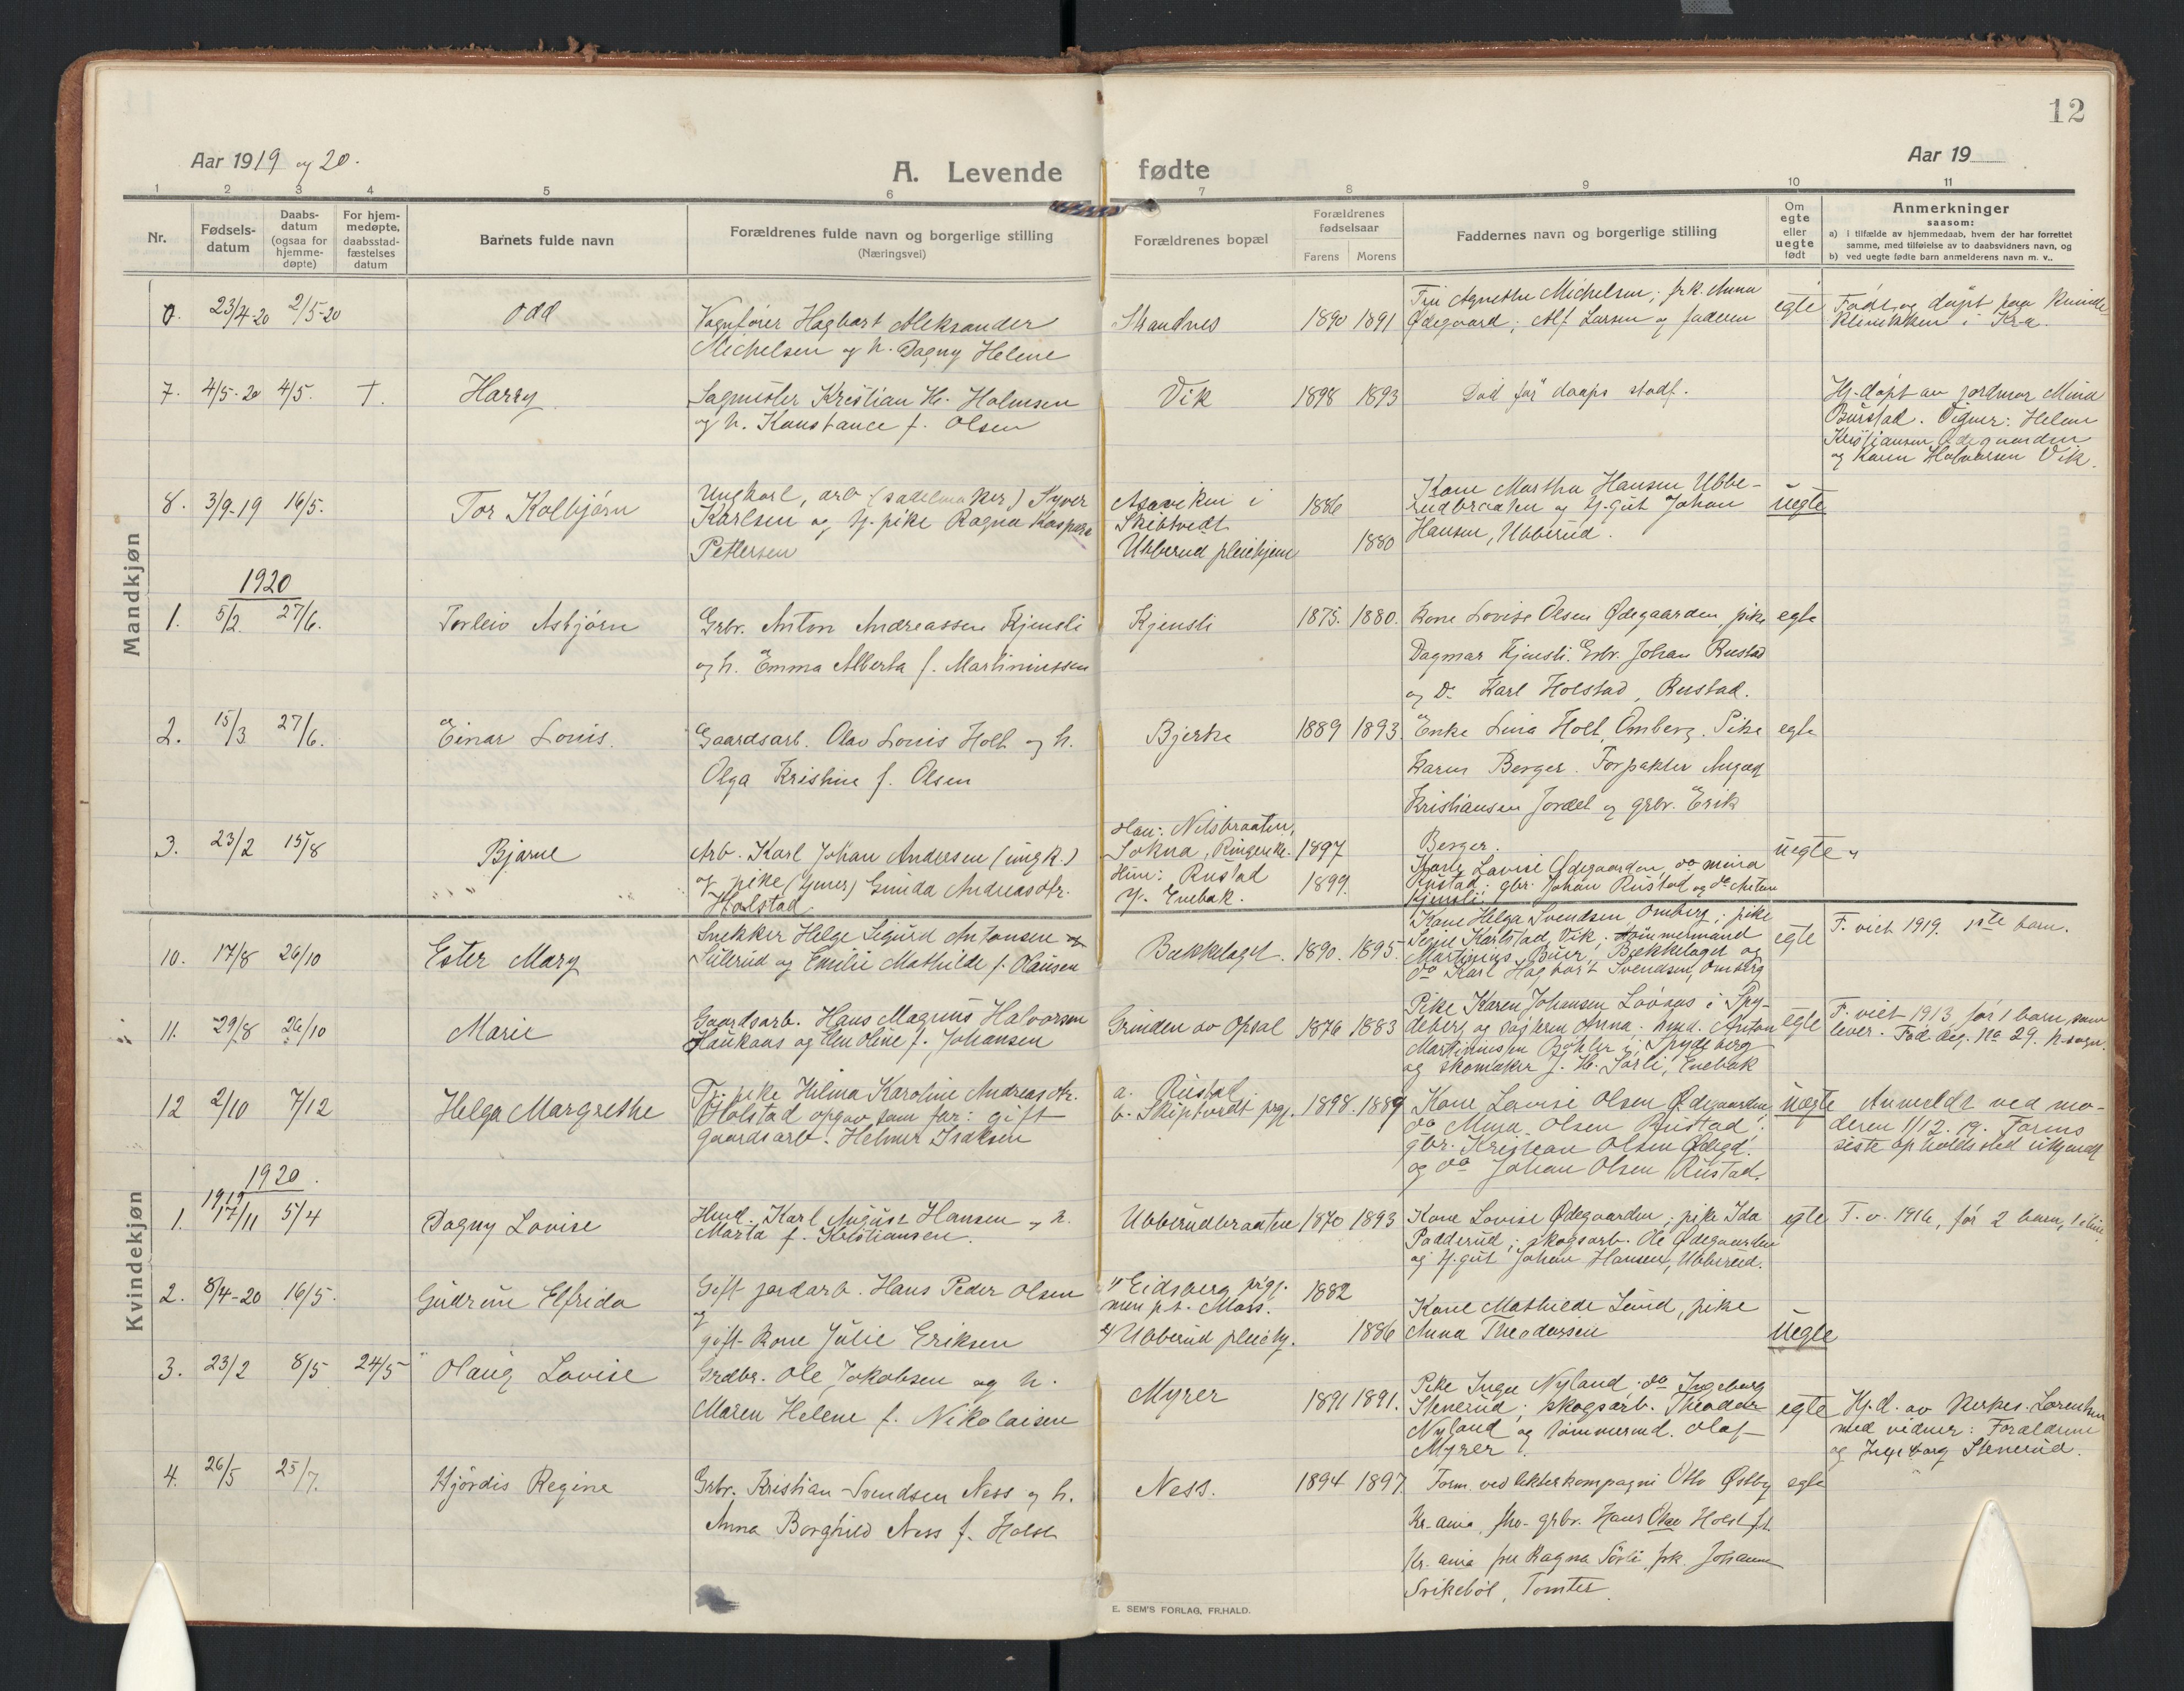 12
Aar 1919 og 20.
A. Levende fødte
Aar 19
1 2 3 4 5 6 7 8 9 10 11
Nr.
Fødsels-
datum
Daabs-
datum
(ogsaa for
hjemme-
døpte)
For hjem-
medøpte,
daabsstad-
fæstelses
datum
Barnets fulde navn
Forældrenes fulde navn og borgerlige stilling
(Næringsvei)
Forældrenes bopæl
Forældrenes
fødselsaar
Farens Morens
Faddernes navn og borgerlige stilling
Om
egte
eller
uegte
født
Anmerkninger
saasom:
a) i tilfælde av hjemmedaab, hvem der har forrettet
samme, med tilføielse av to daabsvidners navn, og
b) ved uegte fødte barn anmelderens navn m. v..
Mandkjøn
23/4-20 2/5-20 Odd
Vognfører Hagbart Aleksander
Michelsen og h. Dagny Helene
Strandnes 1890 1891
Fru Agnethe Michelsen; frk. Anna
Ødegaard; Alf Larsen og faderen
egte
Født og døpt paa Kvinde-
klinikken i Kra.
7. 4/5-20 4/5. †. Harry
Sagmester Kristian H. Holmsen
og h. Konstance f. Olsen
Vik 1898 1893
Død før daaps stadf.
Hj-døpt av jordmor Mina
Burstad. Vidner: Helene
Kristiansen Ødegaarden
og Karen Halvorsen Vik.
8. 3/9-19 16/5. Tor Kolbjørn
Ungkarl, arb (sadelmaker) Syver
Karlsen og hj. pike Ragna Kaspara
Pettersen
i
Skibtvedt
Ubberud pleiehjem
1886
1880
Kone Martha Hansen Ubbe-
rudbraaten og hj.gut Johan
Hansen, Ubberud.
uegte
1920
1. 5/2. 27/6. Torleiv Asbjørn
Grbr. Anton Andreassen Kjensli
og h. Emma Alberta f. Martiniussen
Kjensli 1875. 1880.
Kone Lovise Olsen Ødegaarden, pike
Dagmar Kjensli. Grbr. Johan Rustad
og Do Karl Holstad, Rustad.
egte
2. 15/3 27/6. Einar Louis.
Gaardsarb. Olav Louis Holt og h.
Olga Kristine f. Olsen
Bjerke 1889 1893.
Enke Lina Holt, Omberg. Pike
Karen Berger. Forpakter August
Kristiansen Jordet og grbr. Erik
Berger.
egte
3. 23/2 15/8 Bjarne
Arb. Karl Johan Andersen (ungk.)
og pike (tjener) Gunda Andreasdtr.
Holstad
Han: Nilsbraaten,
Sokna, Ringerike. 1897
Hun: Rustad 1899.
Y. Enebak.
Kone Lovise Ødegaarden, do Mina
Rustad; gbr. Johan Rustad og do Anton
Kjensli.
uegte
10. 17/8 26/10 Ester Mary
Snekker Helge Sigurd Antonsen
og Emilie Mathilde f. Olausen
Bækkelaget. 1890. 1895.
Kone Helga Svendsen, Omberg; pike
Signe Karlstad, Vik; tømmermand
Martinius Buer, Bækkelaget og
do Karl Hagbart Svendsen, Omberg
egte
F. viet 1919. 1ste barn.
11. 29/8 26/10 Marie
Gaardsarb. Hans Magnus Halvorsen
Haukaas og Elen Oline f. Johansen
Grinden av Opsal 1876 1883
Pike Karen Johansen Løvaas i Spy-
deberg og søsteren Anna; hmd. Anton
Martiniussen Bøhler i Spydeberg
og skomaker J. H. Sørli, Enebak
egte
F. viet 1913 før 1 barn, som
lever. Fød. reg. No 29. h-sogn.
Kvindekjøn
12 2/10 7/12 Helga Margrethe
Tj. pike Hilma Karoline Andreasdtr.
Holstad opgav som far: gift
gaardsarb. Helmer Isaksen
a. Rustad
b. Skiptvedt prgj. 1898. 1889
Kone Lovise Olsen Ødegaarden
do Mina Olsen Rustad;
gbr. Kristian Olsen Ødegd.
og do Johan Olsen Rustad.
uegte
Anmeldt ved mo-
deren 1/12. 19. Farens
siste opholdssted ukjendt
1920.
1919
1. 17/11 5/4 Dagny Lovise
Hmd. Karl August Hansen og h.
Marta f. Kristiansen.
Ubberudbraaten 1870 1893
Kone Lovise Ødegaarden; pike Ida
Padderud; skogsarb. Ole Ødegaarden
og hj.gut Johan Hansen, Ubberud.
egte
F. v. 1916, før 2 barn, 1 i live
2. 8/4-20 16/5. Gudrun Elfrida
Gift jordarb. Hans Peder Olsen
og
gift kone Julie Eriksen
1) Eidsberg prgj.
men p.t. Moss. 1882
2) Ubberud pleiehj. 1886
Kone Mathilde Lund, pike
Anna Theodorsen
uegte
3. 23/2 8/5 24/5 Olaug Lovise
Grdbr. Ole Jakobsen og h.
Maren Helene f. Nikolaisen
Myrer 1891 1891.
Pike Inga Nyland; do Ingeborg
Stenerud; skogsarb. Theodor
Nyland og tømmermd. Olaf
Myrer.
egte
Hj.d. av Lorentzen
med vidner: Forældrene
og Ingeborg Stenerud.
4. 26/5 25/7. Hjørdis Regine
Grbr. Kristian Svendsen Ness og h.
Anna Borghild Ness f. Holst
Ness. 1894 1897
Form. ved Akterkompagni Otto Østby
Kr.ania, grbr. Hans Olav Holst
Kr.ania fru Ragna Sørli, frk. Johanne
Svikebøl, Tomter.
egte
E. SEM'S FORLAG, FR.HALD.